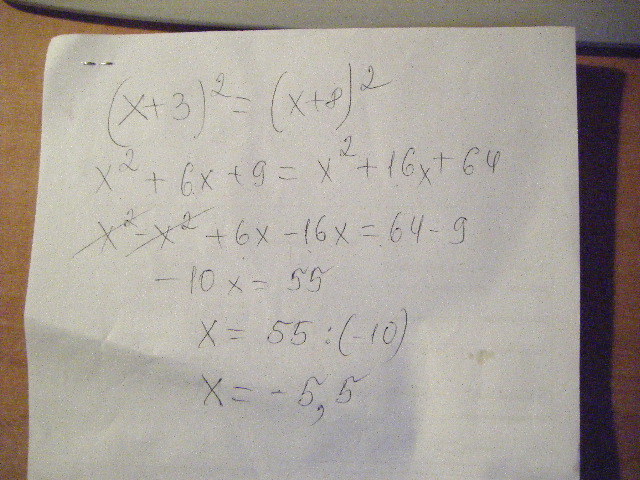 (x+3)² = (x+8)²
x² + 6x + 9 = x² + 16x + 64
x² - x² + 6x - 16x = 64 - 9
-10x = 55
x = 55 : (-10)
x = -5,5